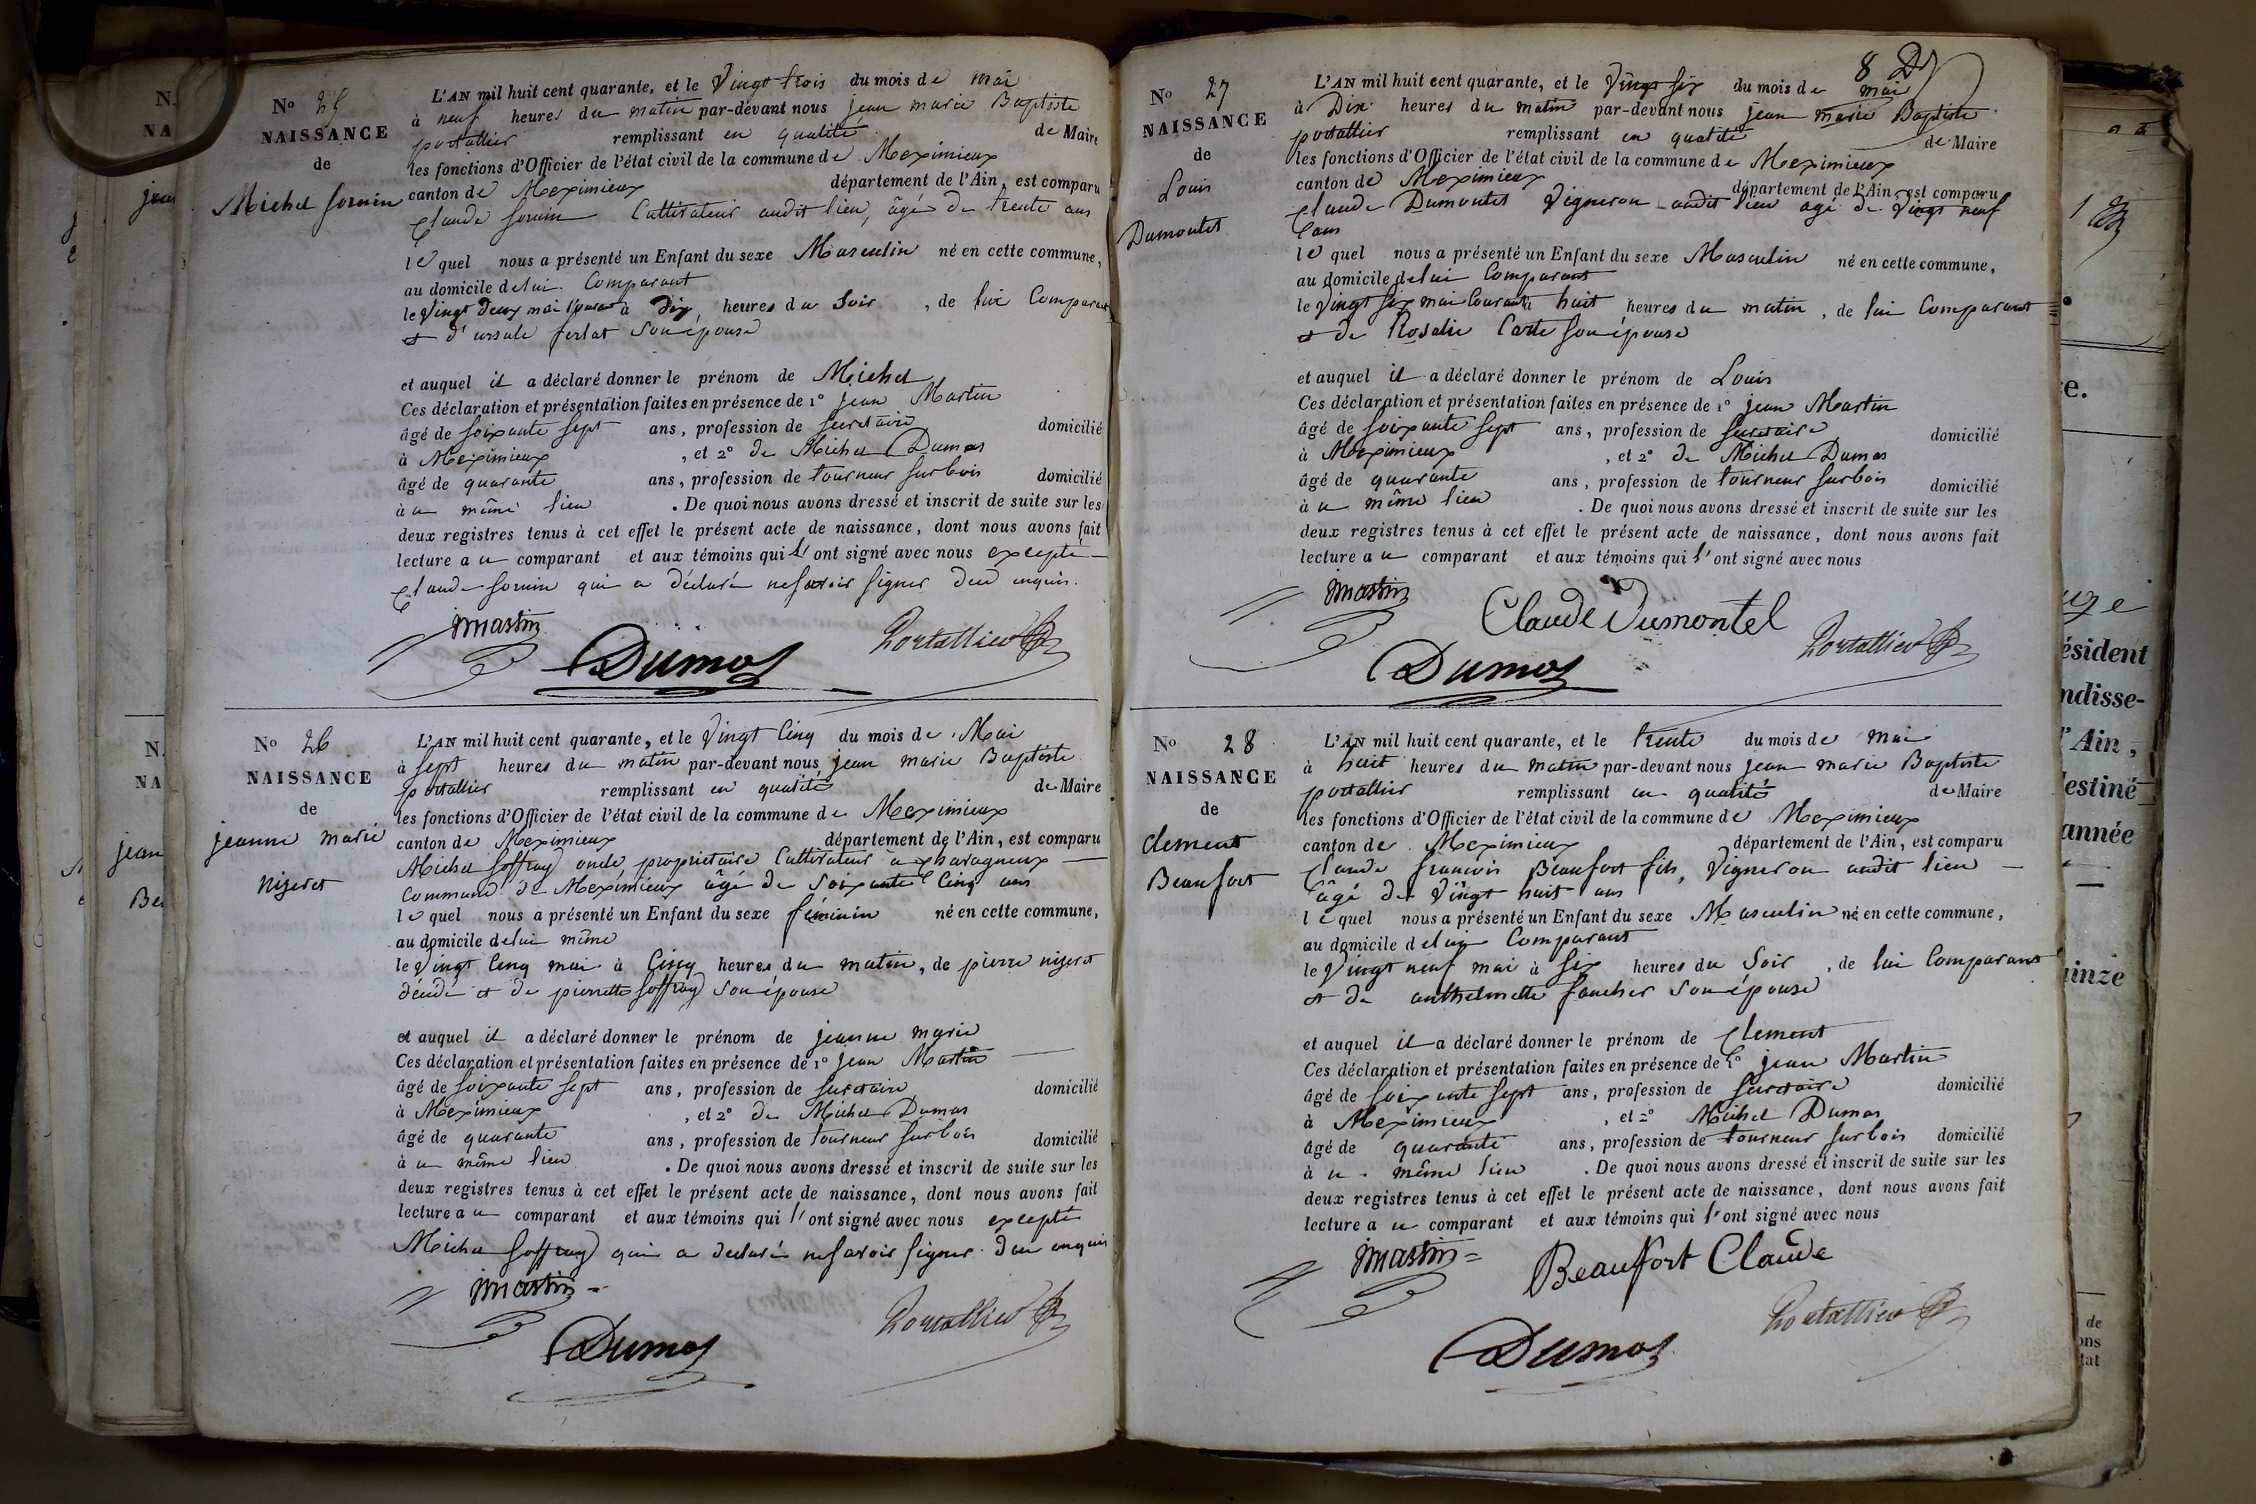 No 25
NAISSANCE
de
Michel Sornin
L'AN mil huit cent quarante, et le Vingt trois du mois de mai
à neuf heures du matin par-devant nous jean marie Baptiste
portallier remplissant en qualité de Maire
les fonctions d'Officier de l'état civil de la commune de Meximieux
canton de Meximieux département de l'Ain, est comparu
Claude Sornin Cultivateur audit lieu, âgé de trente ans
lequel nous a présenté un Enfant du sexe Masculin né en cette commune,
au domicile de lui Comparant
le Vingt Deux mai Courant à Dix heures du Soir, de lui Comparant
et d'ursule ferlat Son épouse
et auquel il a déclaré donner le prénom de Michel
Ces déclaration et présentation faites en présence de 1° jean Martin
âgé de soixante sept ans, profession de secretaire domicilié
à Meximieux, et 2° de Michel Dumas
âgé de quarante ans, profession de tourneur sur bois domicilié
à u même lieu. De quoi nous avons dressé et inscrit de suite sur les
deux registres tenus à cet effet le présent acte de naissance, dont nous avons fait
lecture a u comparant et aux témoins qui l'ont signé avec nous excepté
Claude Sornin qui a déclaré ne savoir signer Due enquis.
jmartin
Portallier
Dumas
No 26
NAISSANCE
de
jeanne marie
Nizeret
L'AN mil huit cent quarante, et le Vingt Cinq du mois de Mai
à sept heures du matin par-devant nous jean marie Baptiste
portallier remplissant en qualité de Maire
les fonctions d'Officier de l'état civil de la commune de Meximieux
canton de Meximieux département de l'Ain, est comparu
Michel Soffray oncle propriétaire Cultivateur à Charagneux
Commune de Meximieux âgé de Soixante Cinq ans
lequel nous a présenté un Enfant du sexe féminin né en cette commune,
au domicile de lui même
le Vingt Cinq mai à Cinq heures du matin, de pierre nizeret
décédé et de pierrette Soffray Son épouse
et auquel il a déclaré donner le prénom de jeanne marie
Ces déclaration et présentation faites en présence de 1° jean Martin
âgé de soixante sept ans, profession de secretaire domicilié
à Meximieux, et 2° de Michel Dumas
âgé de quarante ans, profession de tourneur sur bois domicilié
à u même lieu. De quoi nous avons dressé et inscrit de suite sur les
deux registres tenus à cet effet le présent acte de naissance, dont nous avons fait
lecture a u comparant et aux témoins qui l'ont signé avec nous excepté
Michel Soffray qui a declaré ne savoir signer Due enquis
jmartin
Portallier
Dumas
8
No 27
NAISSANCE
de
Louis
Dumontet
L'AN mil huit cent quarante, et le Vingt six du mois de mai
à Dix heures du matin par-devant nous jean marie Baptiste
portallier remplissant en qualité de Maire
les fonctions d'Officier de l'état civil de la commune de Meximieux
canton de Meximieux département de l'Ain, est comparu
Claude Dumontet Vigneron audit lieu agé de Vingt neuf
ans
lequel nous a présenté un Enfant du sexe Masculin né en cette commune,
au domicile de lui Comparant
le Vingt six mai Courant à huit heures du matin, de lui Comparant
et de Rosalie Carte son épouse
et auquel il a déclaré donner le prénom de Louis
Ces déclaration et présentation faites en présence de 1° jean Martin
âgé de soixante sept ans, profession de secretaire domicilié
à Meximieux, et 2° de Michel Dumas
âgé de quarante ans, profession de tourneur sur bois domicilié
à u même lieu. De quoi nous avons dressé et inscrit de suite sur les
deux registres tenus à cet effet le présent acte de naissance, dont nous avons fait
lecture a u comparant et aux témoins qui l'ont signé avec nous
jmartin
Claude Dumontel
Portallier
Dumas
No 28
NAISSANCE
de
Clement
Beaufort
L'AN mil huit cent quarante, et le trente du mois de mai
à huit heures du matin par-devant nous jean marie Baptiste
portallier remplissant en qualité de Maire
les fonctions d'Officier de l'état civil de la commune de Meximieux
canton de Meximieux département de l'Ain, est comparu
Claude françois Beaufort fils, Vigneron audit lieu
âgé de Vingt huit ans
lequel nous a présenté un Enfant du sexe Masculin né en cette commune,
au domicile de lui Comparant
le Vingt neuf mai à six heures du Soir, de lui Comparant
et de anthelmette faucher Son épouse
et auquel il a déclaré donner le prénom de Clement
Ces déclaration et présentation faites en présence de 1° jean Martin
âgé de soixante sept ans, profession de secretaire domicilié
à Meximieux, et 2° Michel Dumas
âgé de quarante ans, profession de tourneur sur bois domicilié
à u même lieu. De quoi nous avons dressé et inscrit de suite sur les
deux registres tenus à cet effet le présent acte de naissance, dont nous avons fait
lecture a u comparant et aux témoins qui l'ont signé avec nous
jmartin
Beaufort Claude
Portallier
Dumas